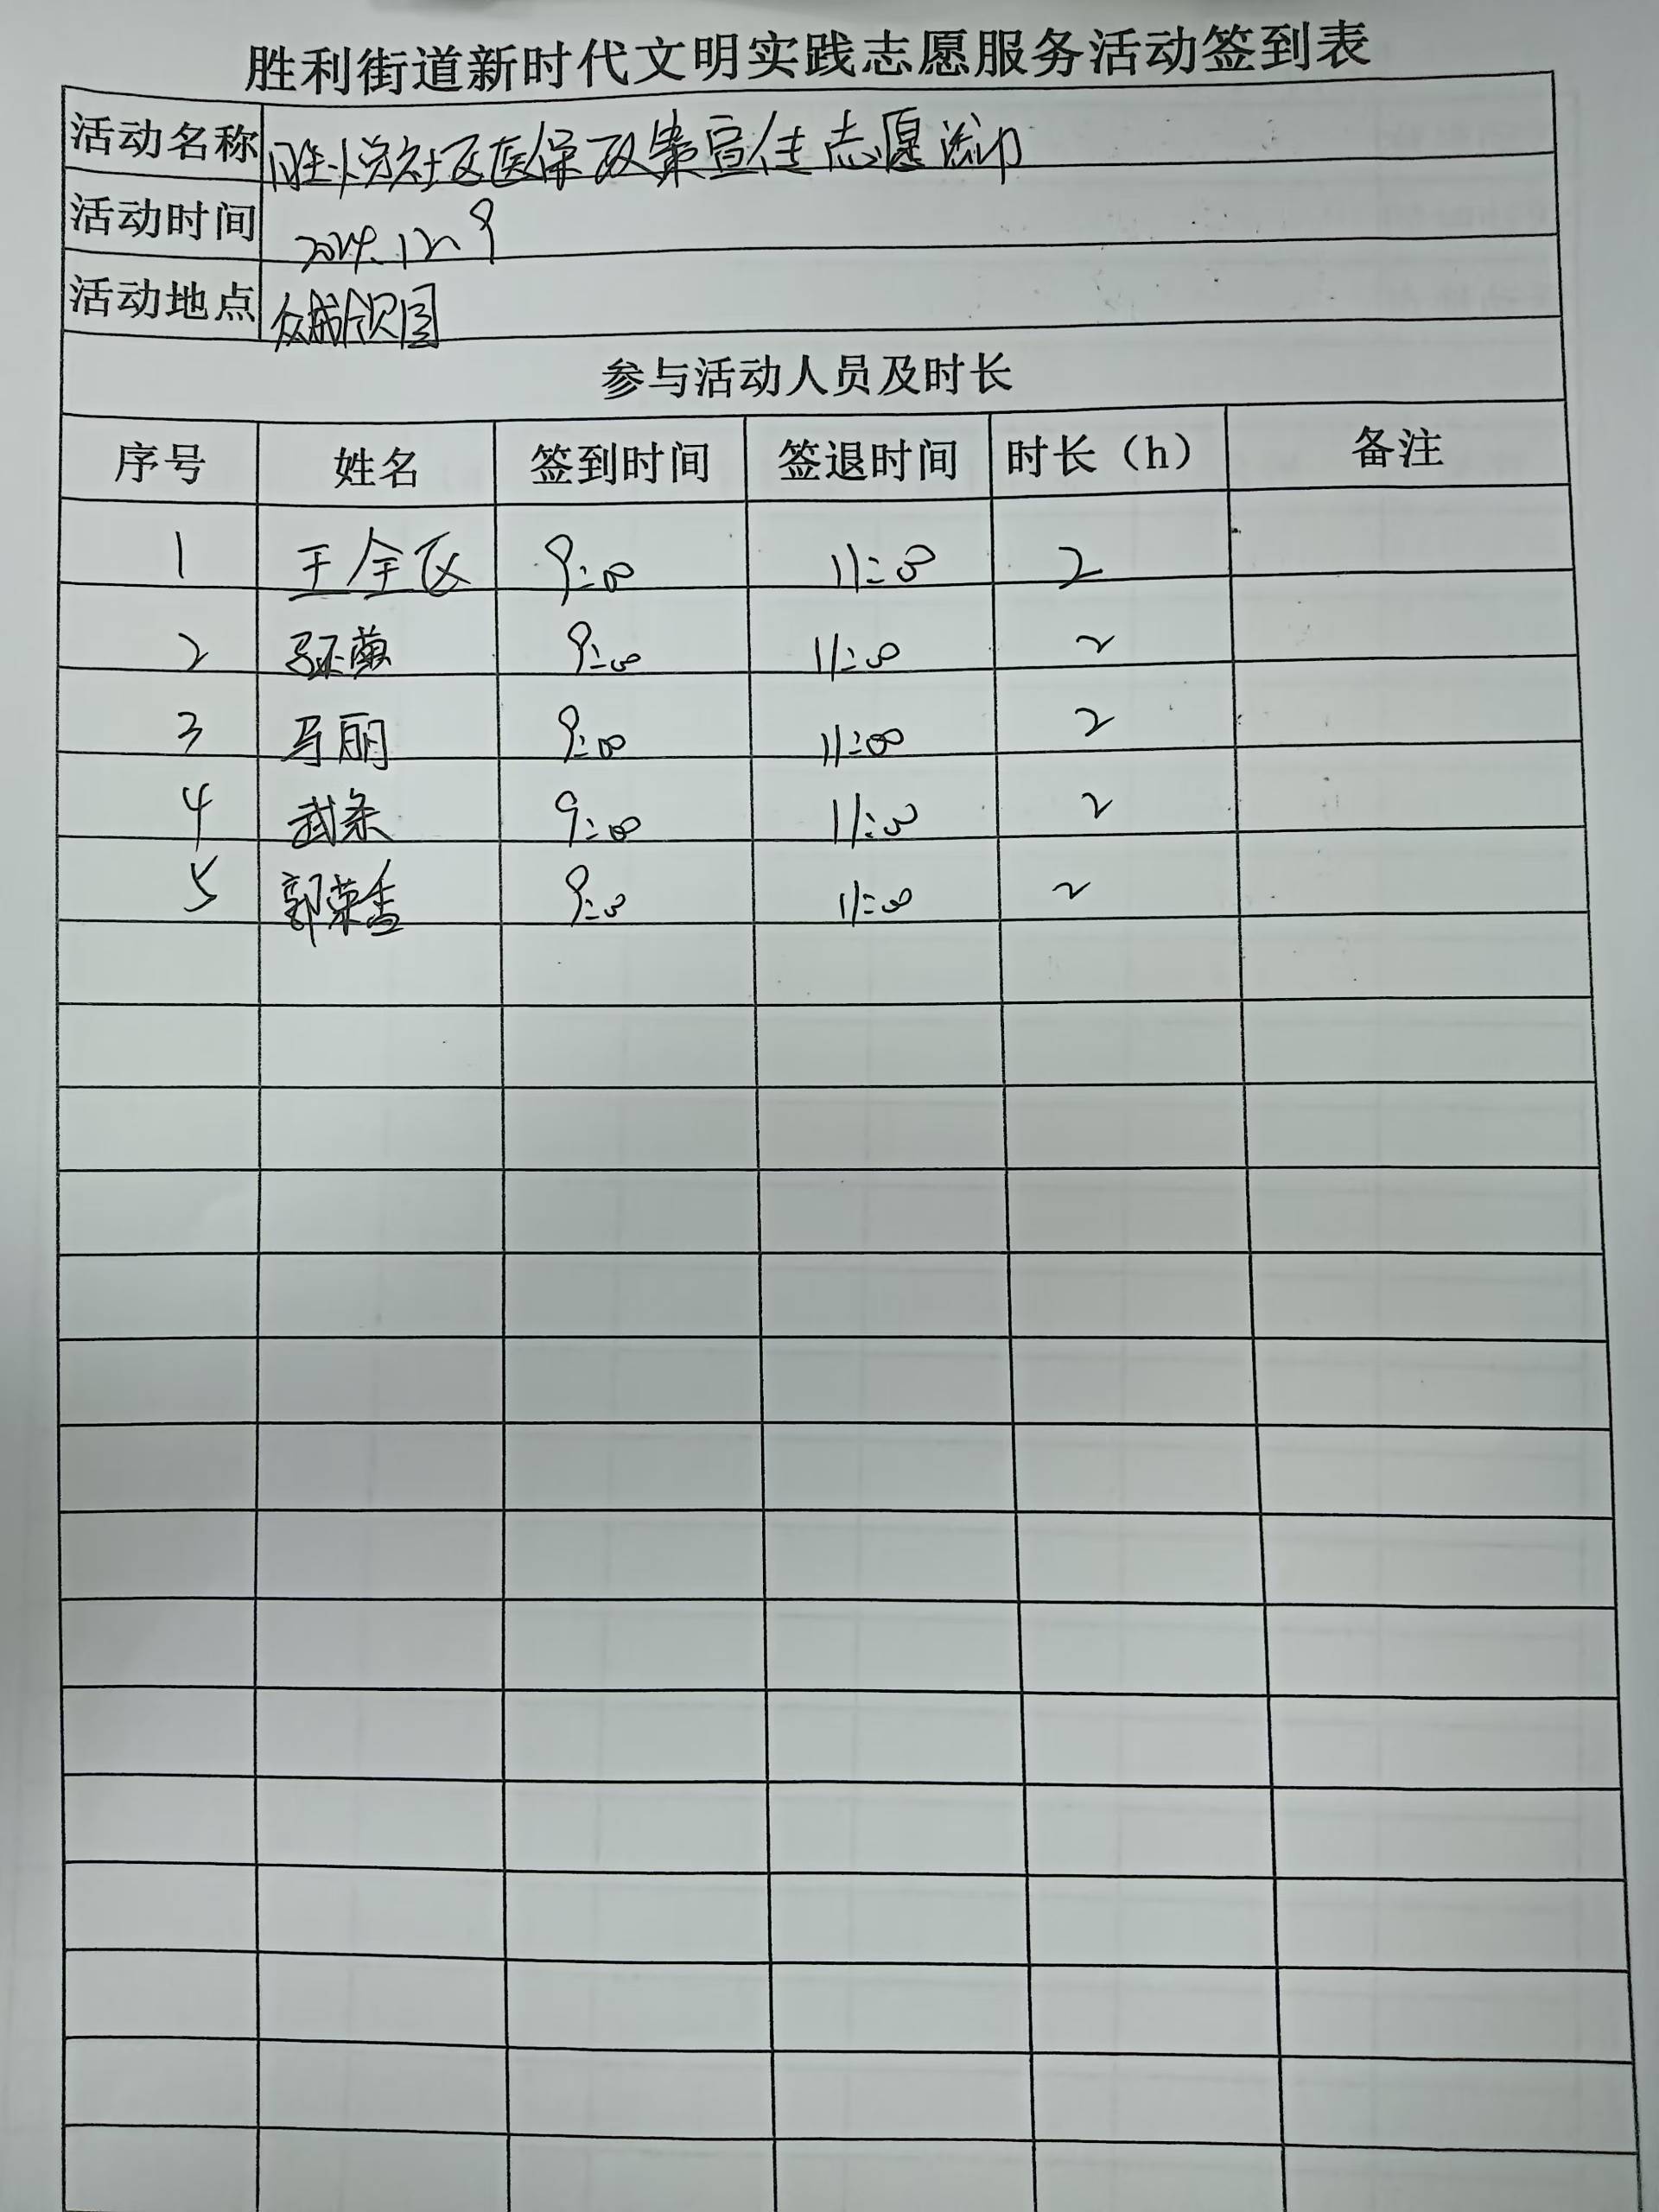 胜利街道新时代文明实践志愿服务活动签到表
活动名称 社区医保政策宣传志愿活动
活动时间 2024.12.9
活动地点 众成颐园
参与活动人员及时长
序号 姓名 签到时间 签退时间 时长（h） 备注
1 王全 9:00 11:00 2
2 9:00 11:00 2
3 马丽 9:00 11:00 2
4 武 9:00 11:00 2
5 郭荣香 9:00 11:00 2